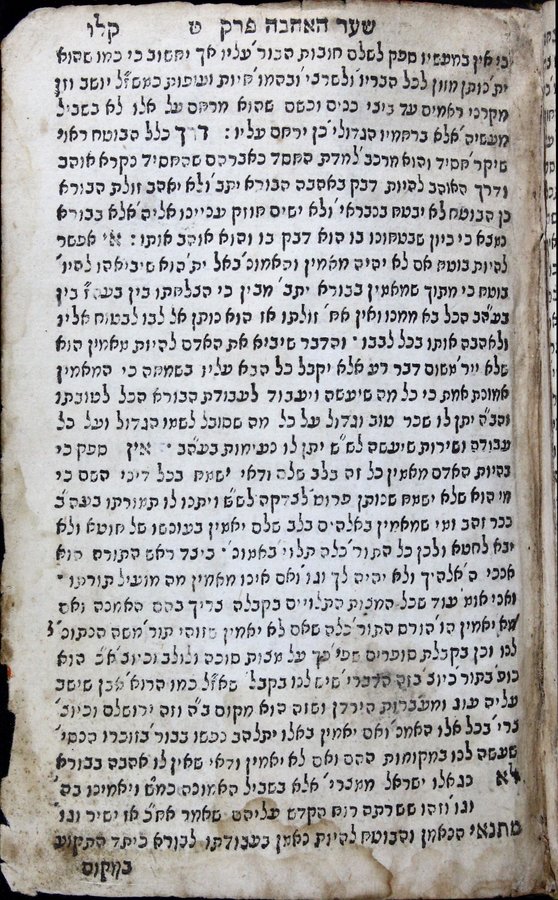 שער האהבה פרק ט קלו
כי אין במעשיו ספק לשלם חובות הבור' עליו אך יחשוב כי כמו שהוא
ית' נותן מזון לכל הבריו' ולשרצי' ובהמו' חיות ועופות כמש"ל יושב וזן
מקרני ראמים עד ביצי כנים וכשם שהוא מרחם על אלו לא בשביל
מעשיה' אלא ברחמיו הגדולי' כן ירחם עליו : דרך כלל הבוטח ראוי
שיקר' חסיד והוא מרכב' למדת החסד כאברהם שהחסיד נקרא אוהב
ודרך האוהב להיות דבק באהבה הבורא יתב' ולא יאהב זולת הבורא
כן הבוטח לא יבטח בנברא' ולא ישים חוזק ענייניו אליה' אלא בבורא
נמצא כי כיון שבטחונו בו הוא דבק בו והוא אוהב אותו : אי אפשר
להיות בוטח אם לא יהיה מאמין והאמונ' באל ית' הוא שיביאהו להיו'
בוטח כי מתוך שמאמין בבורא יתב' מבין כי הצלחתו בין בעה"ז בין
בעה"ב הכל בא ממנו ואין אח' זולתו אז הוא נותן אל לבו לבטוח אליו
ולאהבה אותו בכל לבבו ' והדבר שיביא את האדם להיות מאמין הוא
שלא יירא משום דבר רע אלא יקבל כל הבא עליו בשמחה כי המאמין
אמונת אמת כי כל מה שיעשה ויעבוד לעבודת הבורא הכל לטובתו
והב"ה יתן לו שכר טוב וגדול על כל מה שסובל לשמו הגדול ועל כל
עבודה ושירות שיעשה לש"ש יתן לו נעימות בעה"ב ' אין ספק כי
בהיות האדם מאמין כל זה בלב שלם ודאי ישמח בכל דיני השם כי
מי הוא שלא ישמח שנותן פרוט' לצדקה לש"ש ויתנו לו תמורתו בעה"ב
ככר זהב ומי שמאמין באלהים בלב שלם יאמין בעונשו של חוטא ולא
יבא לחטא ולכן כל התור' כלה תלוי' באמונ' ' כיצד ראש התורה הוא
אנכי ה' אלהיך ולא יהיה לך וגו' ואם אינו מאמין מה מועיל תורתו '
ואני אומ' עוד שכל המצות התלויים בקבלה צריך בהם האמנה ואם
לא יאמין הו' הורס התור' כלה שאם לא יאמין שזוהי תור' משה הנתונ'
לנו וכן בקבלת סופרים מצות סוכה ולולב וכיוצ"א הוא
כופ' בתור' כיוצ' בזה הדברי' שיש לנו בקבל' שאז"ל כמו הרוא' אבן שישב
עליה עוג ומעברות הירדן ושזה הוא מקום ב"ה וזה ירושלם וכיוצ'
צרי' בכל אלו האמנ' ואם יאמין באלו יתלהב נפשו בבור' בזוכרו הנסי'
שעשה לנו במקומות ההם ואם לא יאמין ודאי שאין לו אהבה בבורא
לא נגאלו ישראל ממצרי' אלא בשביל האמונה כמ"ש ויאמינו בה'
וגו' וזהו ששרתה רוח הקדש עליהם שאמר אח"כ אז ישיר וגו'
מתנאי הנאמן והבוטח להיות נאמן בעבודתו לבורא כיתד התקוע
במקום